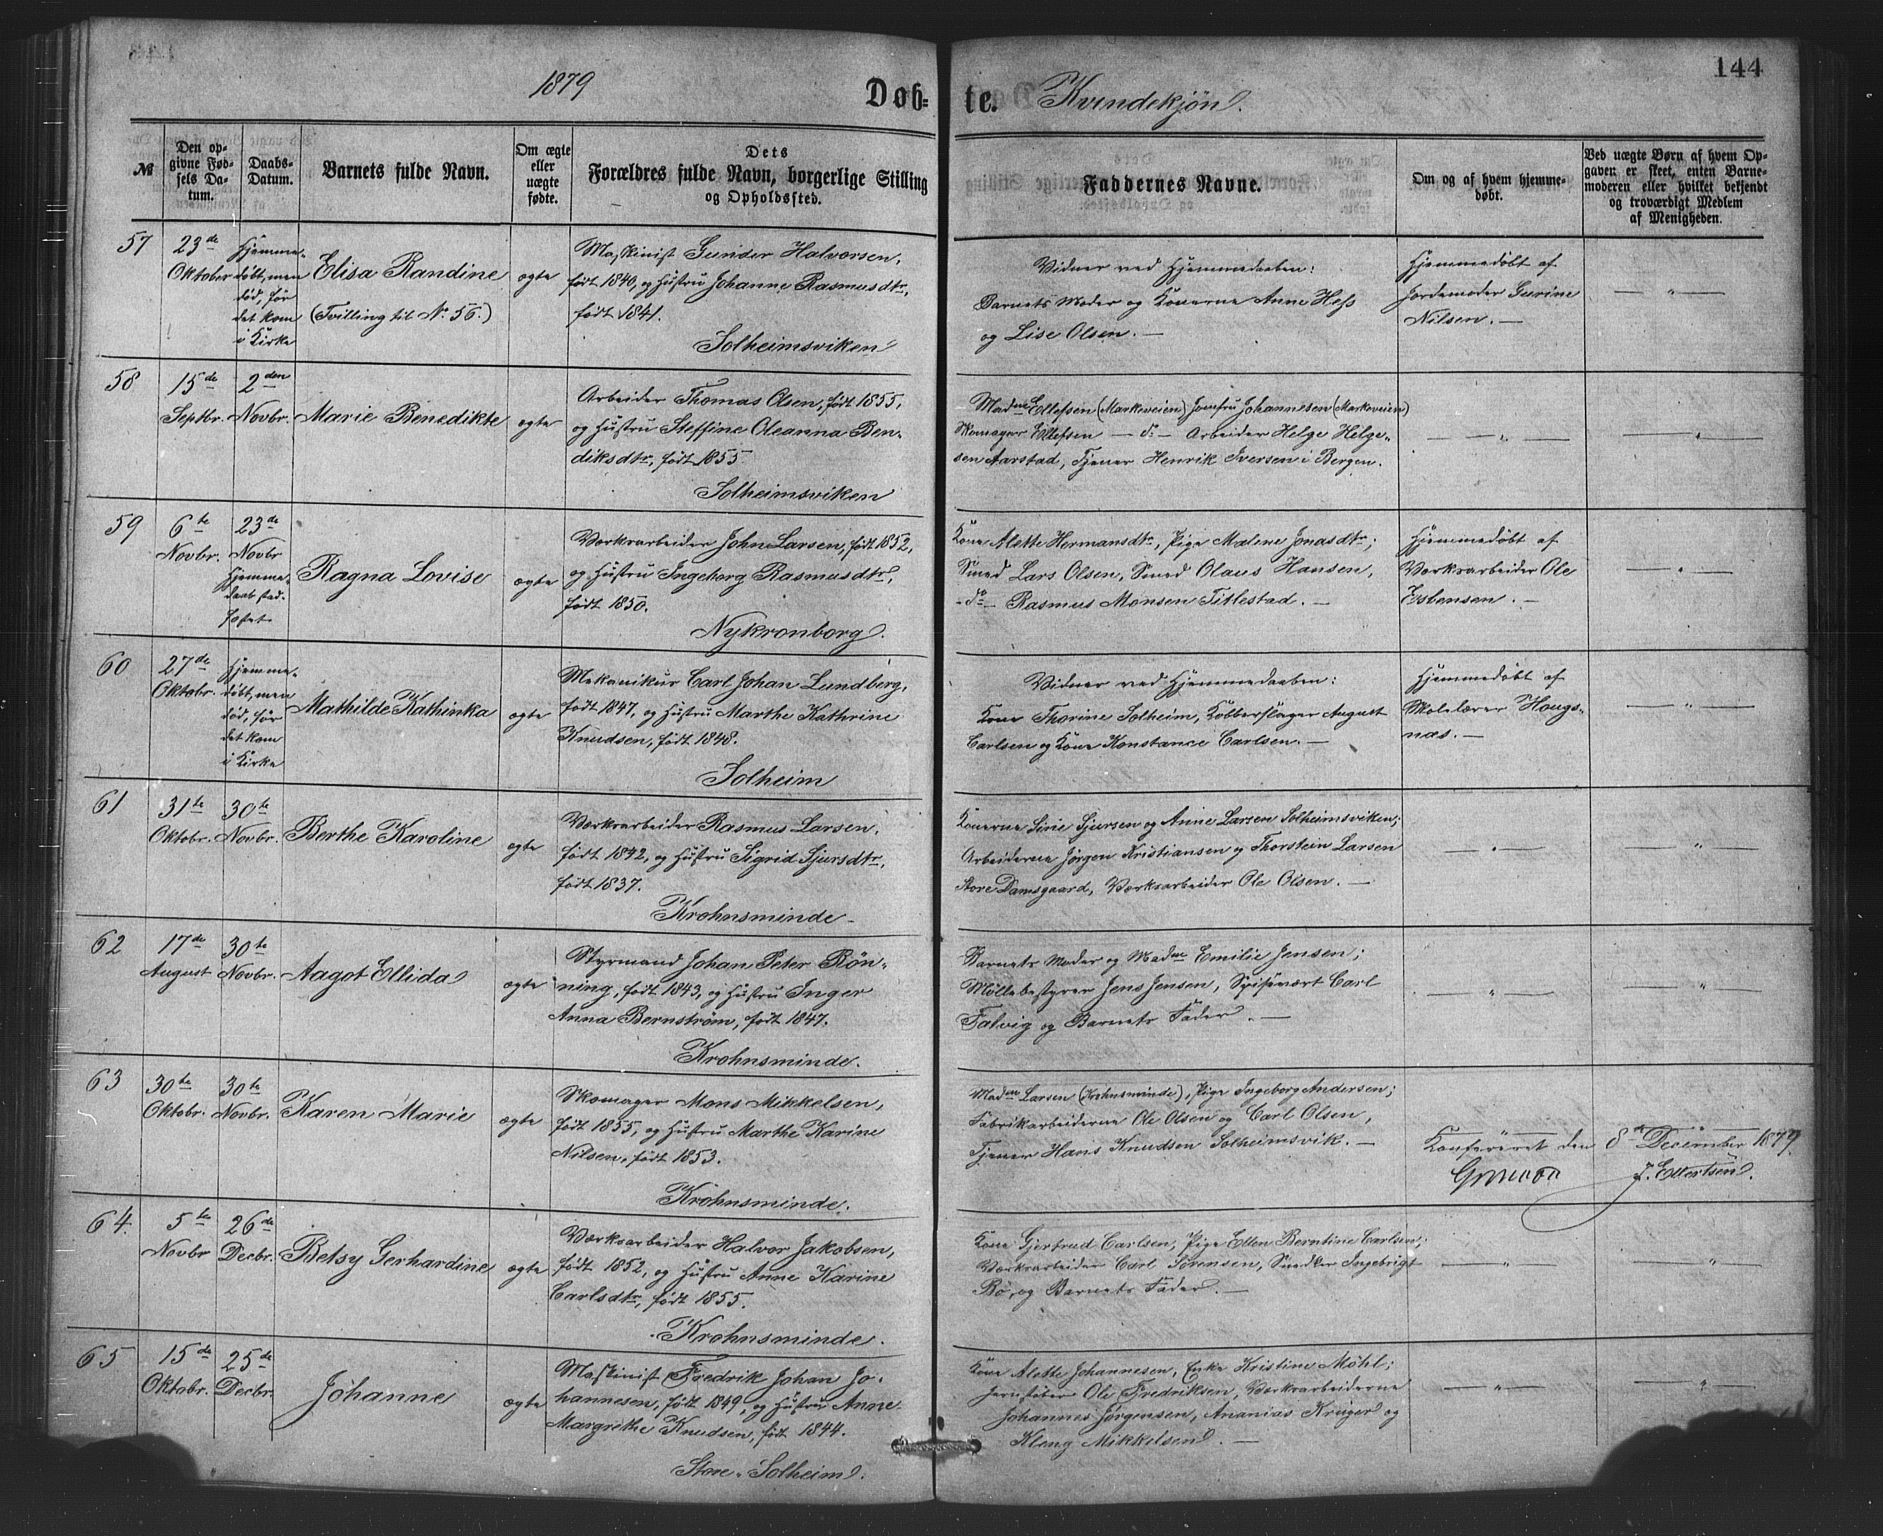 1879
Døb-
te.
Kvindekjøn.
144
№
Den op-
givne Fød-
sels Da-
tum.
Daabs-
Datum.
Barnets fulde Navn.
Om ægte
eller
uægte
fødte.
Dets
Forældres fulde Navn, borgerlige Stilling
og Opholdssted.
Faddernes Navne.
Om og af hvem hjemme-
døbt.
Ved uægte Børn af hvem Op-
gaven er skeet, enten Barne-
moderen eller hvilket bekjendt
og troværdigt Medlem
af Menigheden.
57
23de
Oktober
Hjemme-
døbt, men
død, før
det kom
i Kirke
Elisa Randine
(Tvilling til No 56.)
ægte
Maskinist Gunder Halvorsen,
født 1840, og Hustru Johanne Rasmusdtr,
født 1841.
Solheimsviken
Vidner ved Hjemmedaaben:
Barnets Moder og Konerne Anne Hess
og Lise Olsen. —
Hjemmedøbt af
Jordemoder Gurine
Nilsen. —
— " —
58
15de
Septbr.
2den
Novbr.
Marie Benedikte
ægte
Arbeider Thomas Olsen, født 1855,
og Hustru Steffine Oleanna Ben-
diksdtr, født 1855.
Solheimsviken
Madme Ellefsen (Markeveien) Jomfru Johannesen (Markeveien)
Skomager Ellefsen — do — Arbeider Helge Helge-
sen Aarstad, Tjener Henrik Iversen i Bergen.
— " —
— " —
59
6te
Novbr.
23de
Novbr
Hjemme-
daab stad-
fæstet.
Ragna Lovise
ægte
Værksarbeider John Larsen, født 1852,
og Hustru Ingeborg Rasmusdtr,
født 1850.
Nykronborg.
Kone Alette Hermansdtr, Pige Malene Jonasdtr;
Smed Lars Olsen, Smed Olaus Hansen,
- do - Rasmus Monsen Titlestad. —
Hjemmedøbt af
Værksarbeider Ole
Esbensen. —
— " —
60
27de
Oktobr.
Hjemme-
døbt, men
død, før
det kom
i Kirke
Mathilde Kathinka
ægte
Mekanikus Carl Johan Lundberg,
født 1847, og Hustru Marthe Kathrine
Knudsen, født 1848.
Solheim
Vidner ved Hjemmedaaben:
Kone Thorine Solheim, Kobberslager August
Carlsen og Kone Konstance Carlsen. —
Hjemmedøbt af
Skolelærer Hougs-
næs. —
— " —
61
31te
Oktobr.
30te
Novbr.
Berthe Karoline
ægte
Værksarbeider Rasmus Larsen,
født 1842, og Hustru Sigrid Sjursdtr,
født 1837.
Krohnsminde
Konerne Sirie Sjursen og Anne Larsen Solheimsviken;
Arbeiderne Jørgen Kristiansen og Thorstein Larsen
Store Damsgaard, Værksarbeider Ole Olsen. —
— " —
— " —
62
17de
August
30te
Novbr.
Aagot Ellida
ægte
Styrmand Johan Peter Røn-
ning, født 1843, og Hustru Inger
Anna Bernstrøm, født 1847.
Krohnsminde.
Barnets Moder og Madme Emilie Jensen;
Møllebestyrer Jens Jensen, Spisevært Carl
Talvig og Barnets Fader. —
— " —
— " —
63
30te
Oktobr.
30te
Novbr.
Karen Marie
ægte
Skomager Mons Mikkelsen,
født 1855, og Hustru Marthe Karine
Nilsen, født 1853.
Krohnsminde.
Madme Larsen (Krohnsminde), Pige Ingeborg Andersen;
Fabrikarbeiderne Ole Olsen og Carl Olsen,
Tjener Hans Knudsen Solheimsvik. —
Konfereret den 8de December 1879.
J. Ellertsen.
64
5te
Novbr
26de
Decbr.
Betsy Gerhardine
ægte
Værksarbeider Halvor Jakobsen,
født 1852, og Hustru Anne Karine
Carlsdtr, født 1855.
Krohnsminde.
Kone Gjertrud Carlsen, Pige Ellen Berntine Carlsen;
Værksarbeider Carl Sørensen, Snedker Ingebrigt
Bø, og Barnets Fader. —
— " —
— " —
65
15de
Oktobr.
25de
Decbr.
Johanne
ægte
Maskinist Fredrik Johan Jo-
hannesen, født 1849, og Hustru Anne
Margrethe Knudsen, født 1844.
Store-Solheim.
Kone Alette Johannesen, Enke Kristine Møhl;
Jernstøber Ole Fredriksen, Værksarbeiderne
Johannes Jørgensen, Ananias Krüger og
Kleng Mikkelsen. —
— " —
— " —